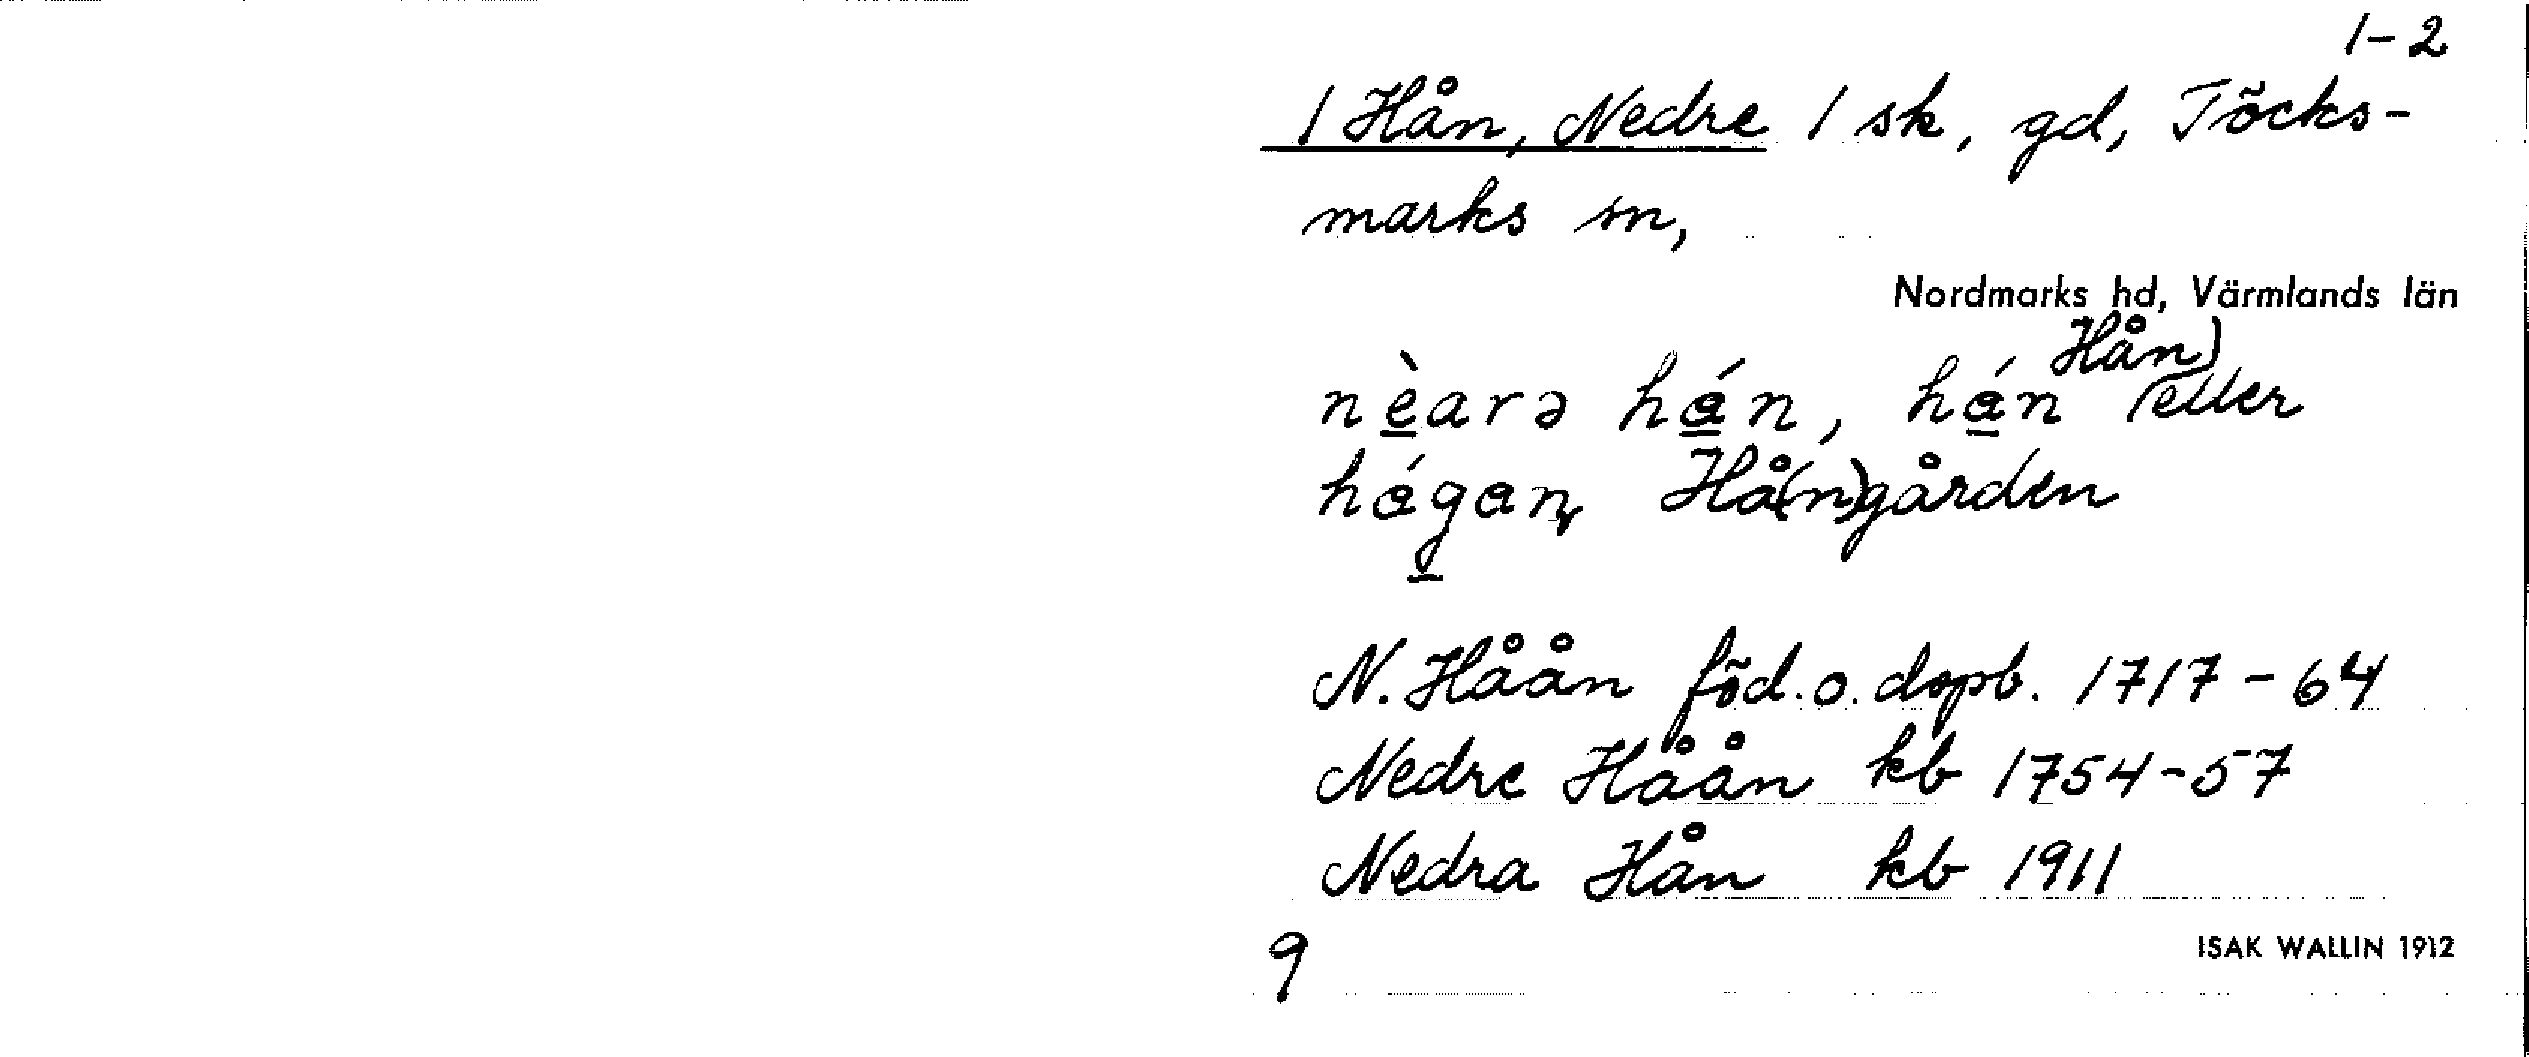 1-2
1 Hån, Nedre 1 sk, gd, Töcks-
marks sn,
Nordmarks hd, Värmlands län
Hån)
nèarə hán, hán (eller
hágan, Hå(n)gården
N. Håån föd. o. dopb. 1717-64
Nedre Håån kb 1754-57
Nedra Hån kb 1911
9
ISAK WALLIN 1912